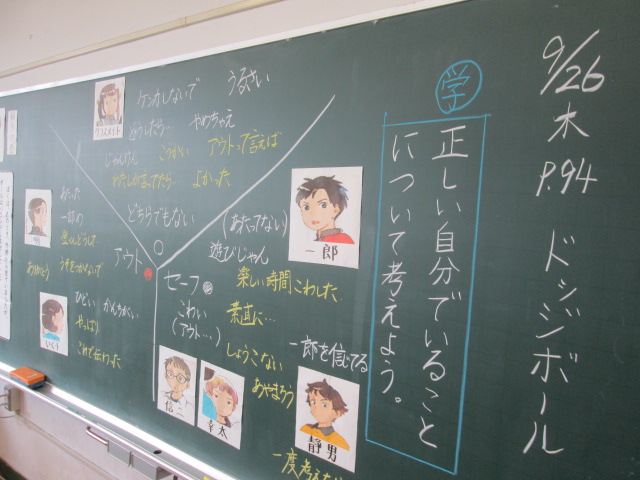 9/26 木 P.94 ドッジボール
学
正しい自分でいること
について考えよう。
ケンカしないで うるさい
どうしたら… やめちゃえ
じゃんけん こうかい アウトって言えば
わたしが止まってたら… よかった
クラスメイト
どちらでもない
(あたってない)
一郎
遊びじゃん
アウト
セーフ
楽しい時間こわした
こわい
素直に…
(アウト…)
しょうこない
一郎を信じてる
あやまろう
信二
幸太
静男
明
あたった
一郎の
ありがとう うそをつかないで
ひどい かんちがい
やっぱり
これで伝わった
いく子